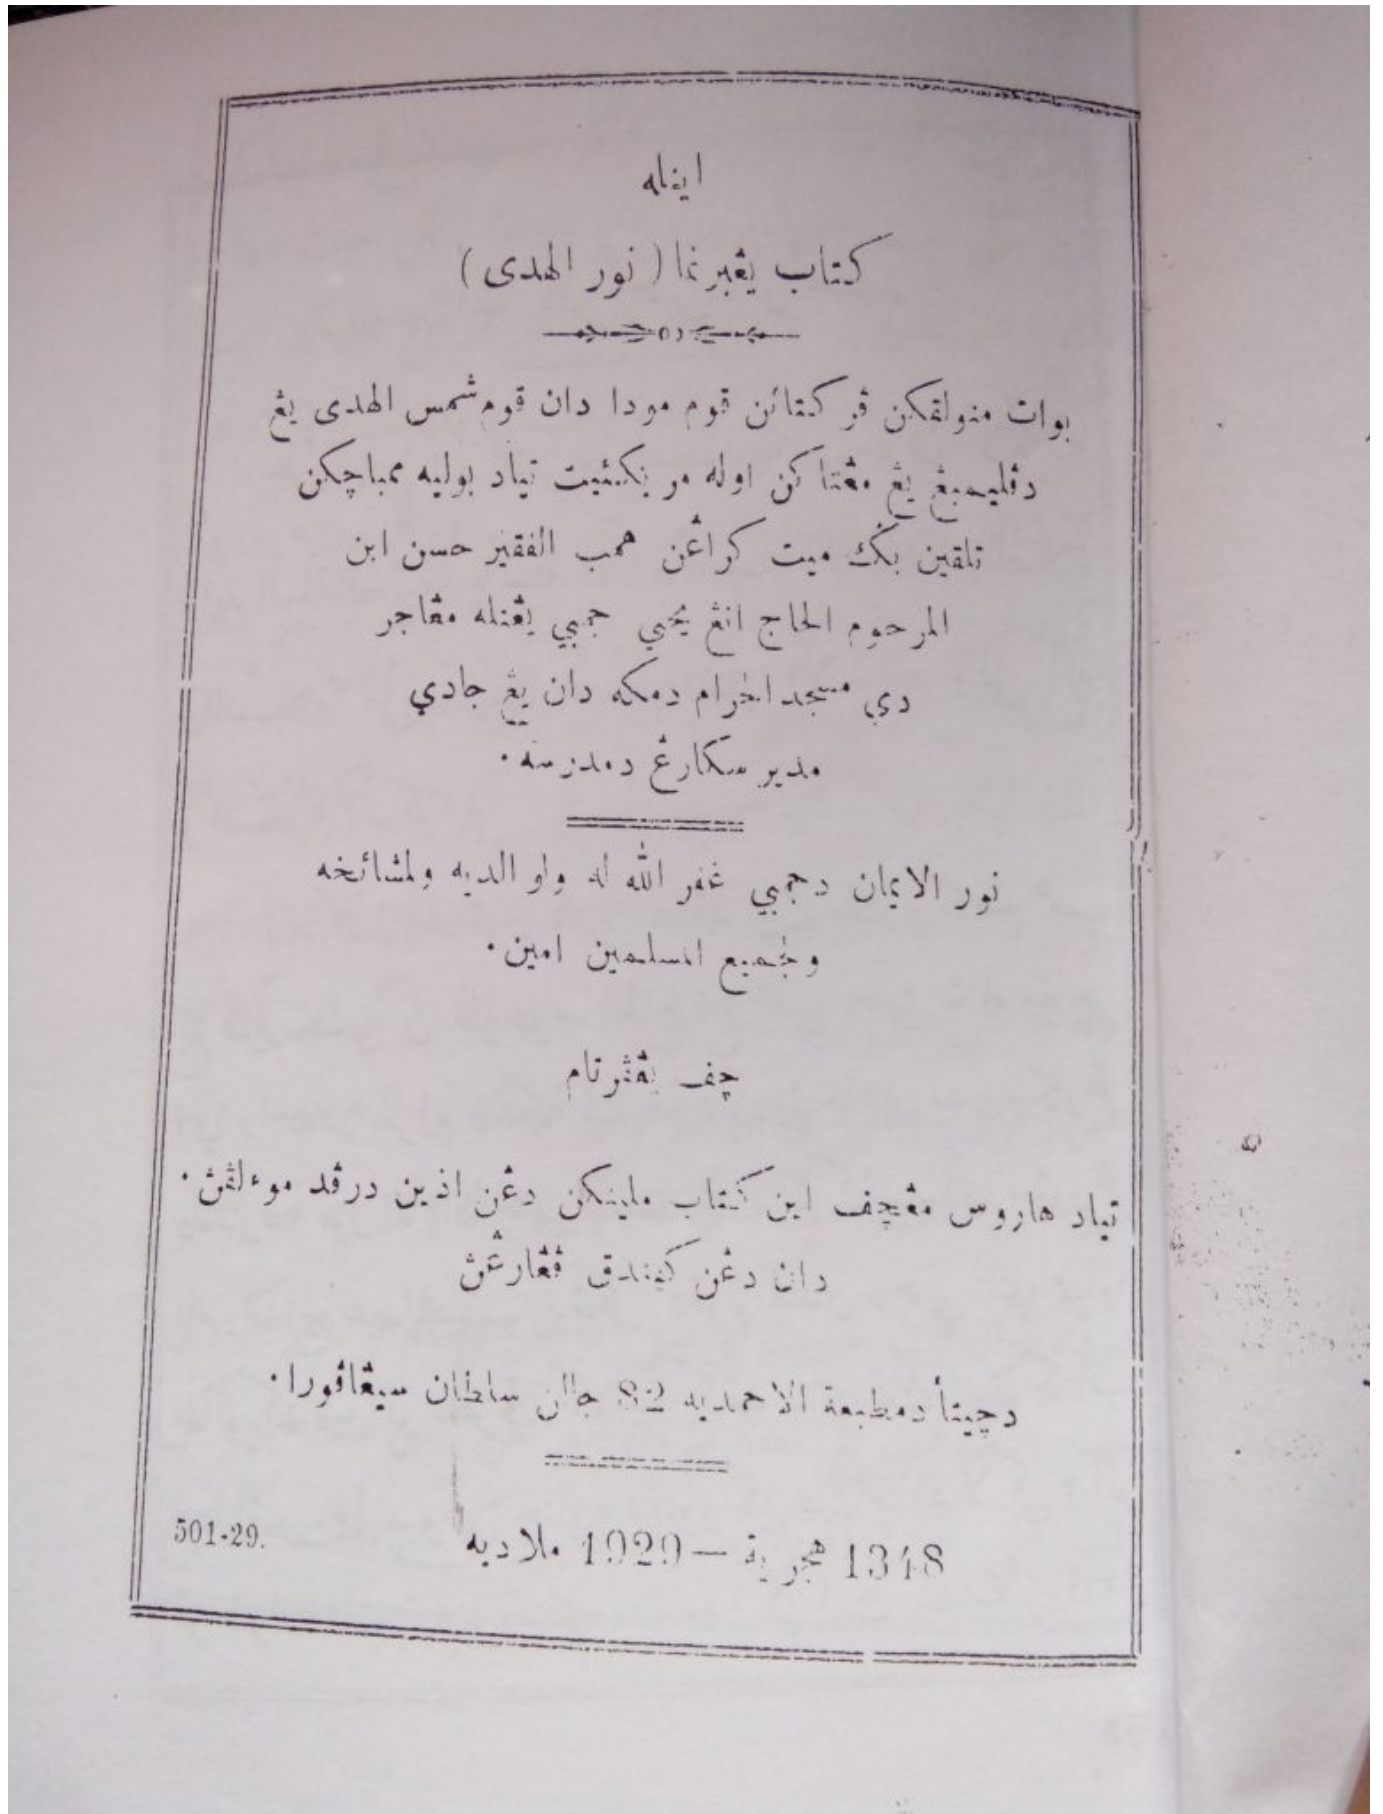 اينله
كتاب يڠبرنما ( نور الهدى )
بوات منولقكن ڤركتائن قوم مودا دان قوم شمس الهدى يڠ
دڤليمبڠ يڠ مڠتاكن اوله مريكئيت تياد بوليه ممباچكن
تلقين بڬي ميت كراڠن همب الفقير حسن ابن
المرحوم الحاج انڠ يحيي جمبي يڠتله مڠاجر
دي مسجد الحرام دمكه دان يڠ جادي
مدير سكارڠ دمدرسه٠
نور الايمان دجمبي غفر الله له ولو الديه ولمشائخه
ولجميع المسلمين امين٠
چڤ يڠڤرتام
تياد هاروس مڠچڤ اين كتاب ملينكن دڠن اذين درڤد موءلڤڽ٠
دان دڠن كهندق ڤڠارڠڽ
دچيتأ دمطبعة الاحمديه 82 جالن سلطان سيڠاڤورا٠
1348 هجرية — 1929 ملاديه
501-29.